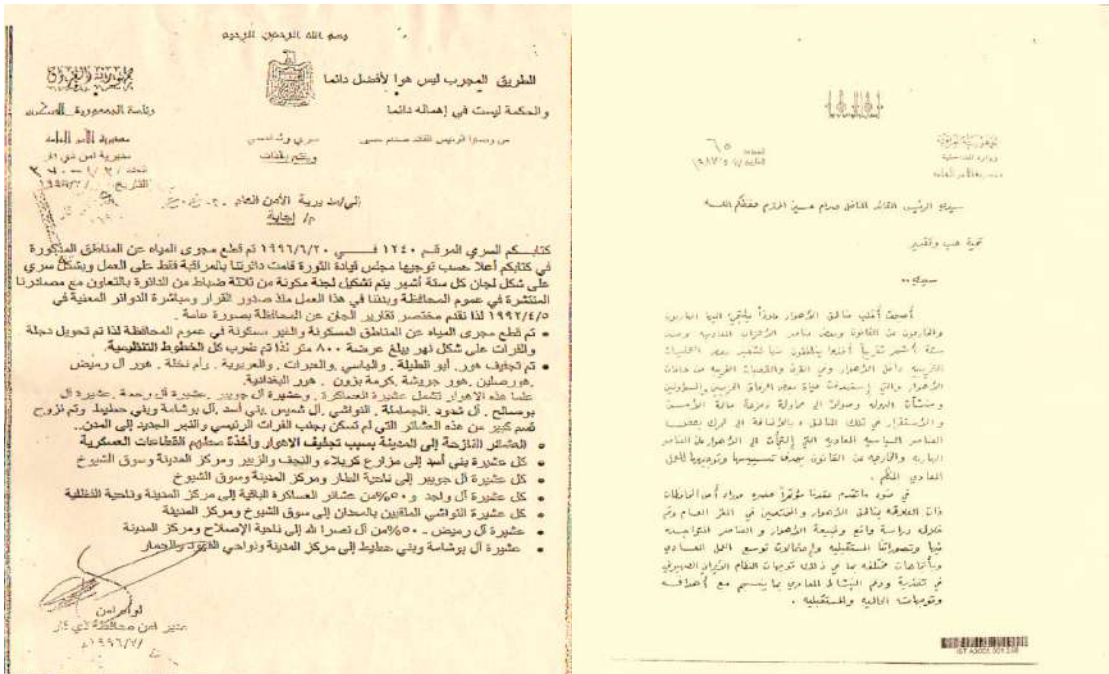 بسم الله الرحمن الرحيم
الطريق المجرب ليس هوا لأفضل دائما
والحكمة ليست في إهماله دائما
من وصايا الرئيس القائد صدام حسين
جمهورية العراق
رئاسة الجمهورية
مديرية الأمن العامة
مديرية امن ذي قار
سري
إلى/مديرية الأمن العام
م/ إجابة
كتابكم السري المرقم ١٢٤٠ فـــــي ١٩٩٦/٦/٢٠ تم قطع مجرى المياه عن المناطق المذكورة
في كتابكم أعلا حسب توجيها مجلس قيادة الثورة قامت دائرتنا بالمراقبة فقط على العمل وبشكل سري
على شكل لجان كل ستة أشهر يتم تشكيل لجنة مكونة من ثلاثة ضباط من الدائرة بالتعاون مع مصادرنا
المنتشرة في عموم المحافظة وبدئنا في هذا العمل منذ صدور القرار ومباشرة الدوائر المعنية في
١٩٩٢/٤/٥ لذا نقدم مختصر تقارير الجان عن المحافظة بصورة عامة .
• تم قطع مجرى المياه عن المناطق المسكونة والغير مسكونة في عموم المحافظة لذا تم تحويل دجلة
والفرات على شكل نهر يبلغ عرضة ٨٠٠ متر لذا تم ضرب كل الخطوط التنظيمية.
• تم تجفيف هور. أبو الطليلة . والياسي .والعبرات . والعريوية . رام نخلة . هور ال رميض
.هورصلين. هور جريشة .كرمة بزون . هور البغدانية.
علما هذه الاهوار تشمل عشيرة العساكرة . وعشيرة آل جويبر .عشيرة آل رحمة .عشيرة ال
بوصالح . آل شدود .الجماملة. النواشي .آل شميس .بني أسد .آل بوشامة وبني حطيط وتم نزوح
قسم كبير من هذه العشائر التي لم تسكن بجنب الفرات الرئيسي والنهر الجديد إلى المدن..
• العشائر النازحة إلى المدينة بسبب تجفيف الاهوار وأخذة معظم القطاعات العسكرية
• كل عشيرة بني أسد إلى مزارع كربلاء والنجف والزبير ومركز المدينة وسوق الشيوخ
• كل عشيرة آل جويبر إلى ناحية الطار ومركز المدينة وسوق الشيوخ
• كل عشيرة آل واجد و ٥٠%من عشائر العساكرة الباقية إلى مركز المدينة وناحية الفضلية
• كل عشيرة النواشي الملقبين بالمعدان إلى سوق الشيوخ ومركز المدينة
• عشيرة آل رميض ـ ٥٠%من آل نصرا لله إلى ناحية الإصلاح ومركز المدينة
• عشيرة آل بوشامة وبني حطيط إلى مركز المدينة ونواحي الفهود والحمار
لواء امن
مدير امن محافظة ذي قار
وزارة الداخلية
مديرية الأمن العامة
العدد ٦٥
سيدي الرئيس القائد المناضل صدام حسين المحترم حفظكم الله
تحية حب وتقدير
سيدي ..
أصبحت أغلب مناطق الأهوار ملاذاً يلتجئ اليها الهاربون
والخارجون عن القانون وبعض عناصر الأحزاب المعادية ومنذ
ستة أشهر تقريباً أخذوا ينطلقون منها لتنفيذ بعض العمليات
التخريبية داخل الأهوار وفي القرى والقصبات القريبة من حافات
الأهوار والتي إستهدفت حياة بعض الرفاق الحزبيين والمسؤولين
ومنشآت الدولة وصولاً الى محاولة زعزعة حالة الأمن
والأستقرار في تلك المناطق ، بالأضافة الى تحرك
العناصر السياسية المعادية التي إلتجأت الى الأهوار على العناصر
الهاربة والخارجة عن القانون بهدف تسييسها وتوجيهها للعمل
المعادي المنظم .
في ضوء ماتقدم عقدنا مؤتمراً حضره مدراء أمن المحافظات
ذات العلاقة بمناطق الأهوار والمختصين في المقر العام وتم
خلاله دراسة واقع وطبيعة الأهوار و العناصر المتواجدة
فيها وتصوراتنا المستقبلية وإحتمالات توسع العمل المعادي
وبأتجاهات مختلفة بما في ذلك توجهات النظام الأيراني الصهيوني
في تغذية ودعم النشاط المعادي بما ينسجم مع أهدافه
وتوجهاته الحالية والمستقبلية .